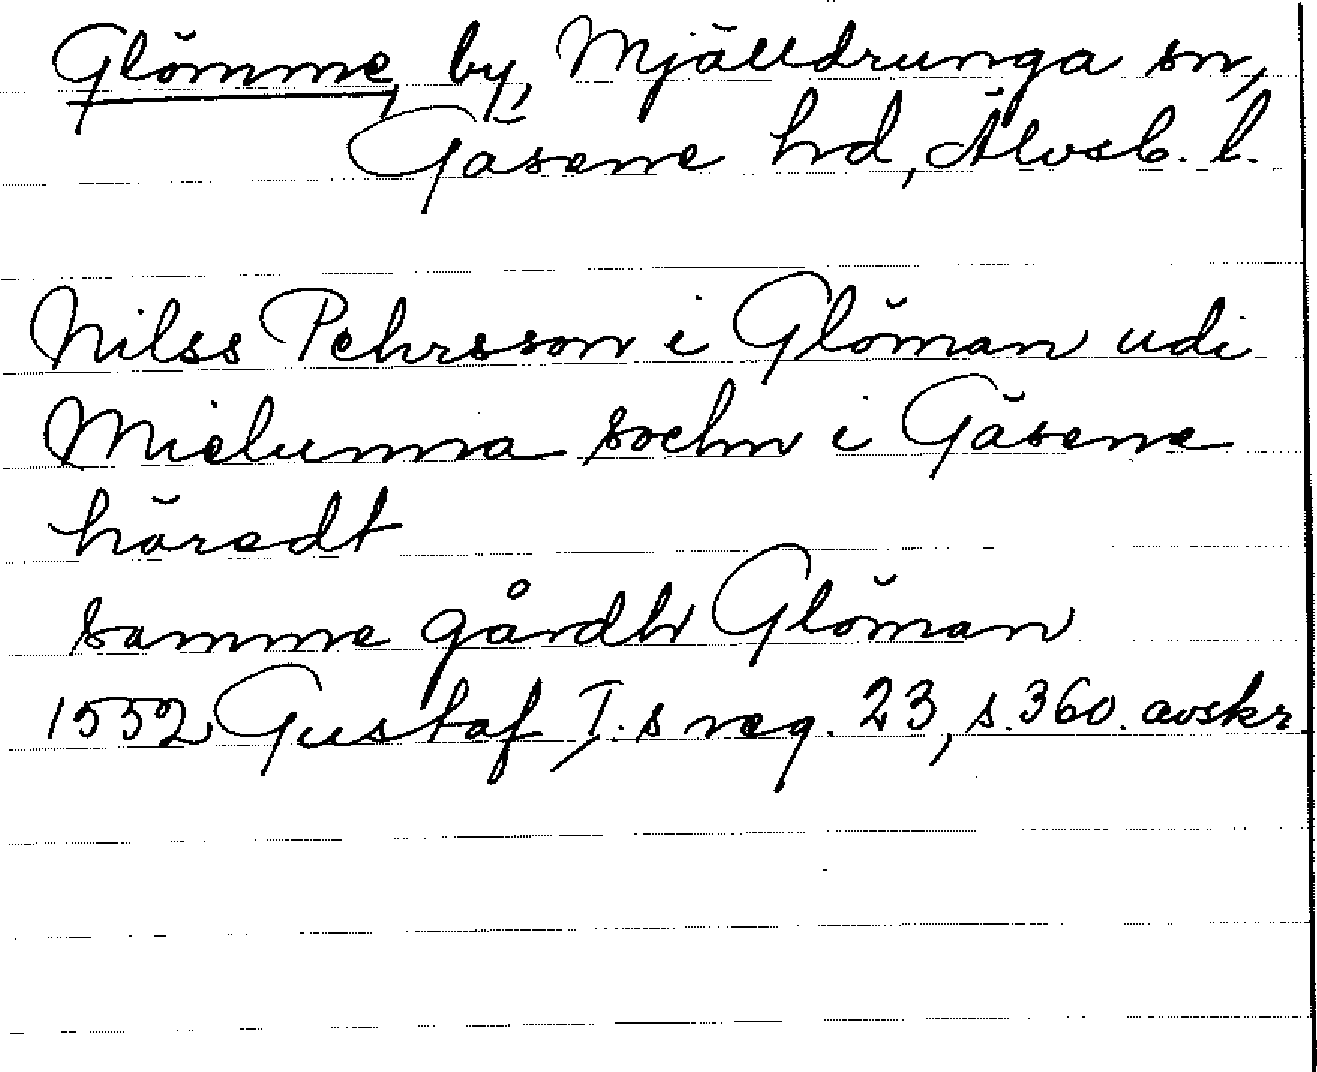 Glömme by, Mjälldrunga sn,
Gäsene hd, Älvsb. l.
Nilss Pehrsson i Glöman udi
Mielunna sochn i Gäsene
häredt
samme gårdh Glöman
1552 Gustaf I.s reg. 23, s. 360. avskr